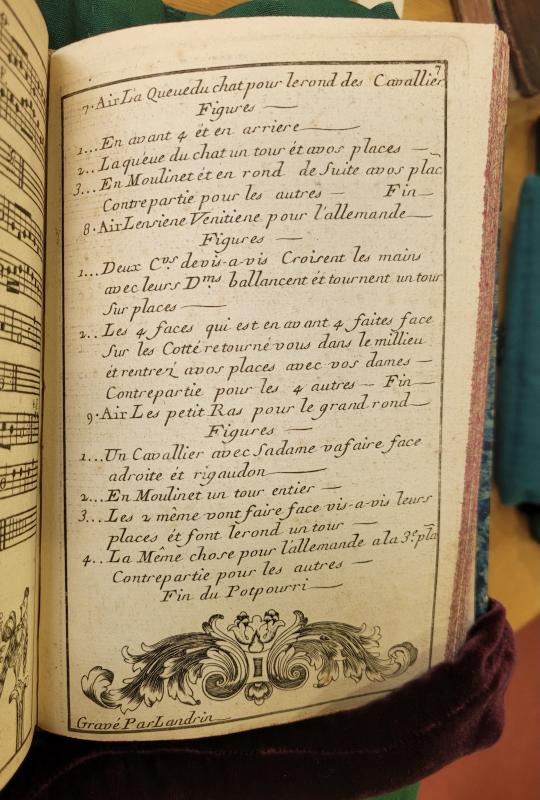 7
7. Air La Queue du chat pour le rond des Cavallier
Figures —
1... En avant 4 et en arriere —
2.. La queue du chat un tour et avos places —
3... En Moulinet et en rond de Suite avos plac
Contrepartie pour les autres — Fin —
8. Air Lensiene Venitiene pour l'allemande —
Figures —
1... Deux C.vs de vis-a-vis Croisent les mains
avec leurs D.ms ballancent et tournent un tour
Sur places —
2.. Les 4 faces qui est en avant 4 faites face
Sur les Cotté retourné vous dans le millieu
ét rentrez avos places avec vos dames —
Contrepartie pour les 4 autres — Fin —
9. Air Les petit Ras pour le grand rond —
Figures —
1... Un Cavallier avec Sadame va faire face
adroite ét rigaudon —
2... En Moulinet un tour entier —
3... Les 2 même vont faire face vis-a-vis leurs
places ét font lerond un tour —
4.. La Même chose pour l'allemande a la 3.e pla
Contrepartie pour les autres —
Fin du Potpourri —
Gravé Par Landrin